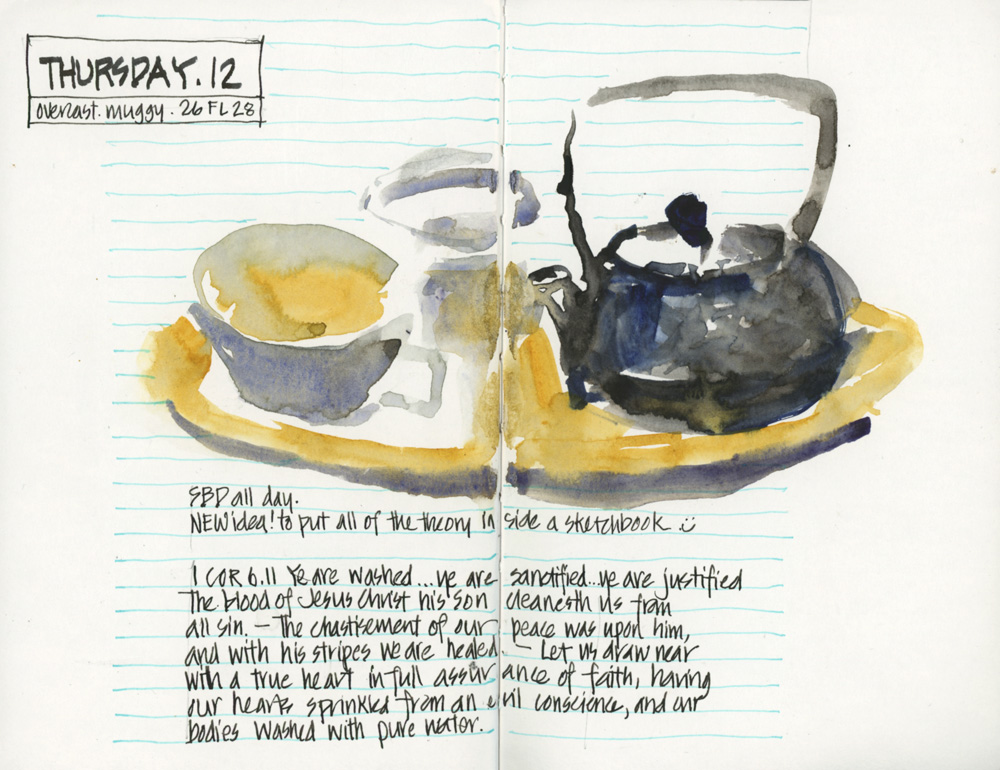 THURSDAY. 12
overcast. muggy. 26 FL 28
SBD all day.
NEW idea! to put all of the theory in side a sketchbook
1 COR 6.11 Ye are washed... ye are sanctified... ye are justified
The blood of Jesus Christ his son cleanesth us from
all sin. — The chastisement of our peace was upon him,
and with his stripes we are healed. — Let us draw near
with a true heart in full assurance of faith, having
our hearts sprinkled from an evil conscience, and our
bodies washed with pure water.